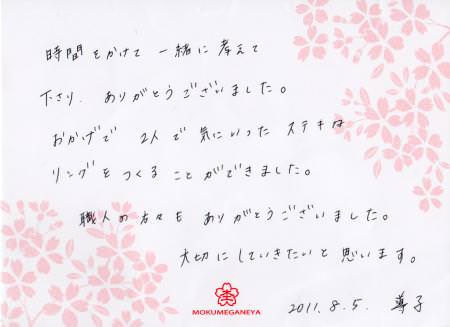 時間をかけて 一緒に考えて
下さり、ありがとうございました。
おかげで 2人で気にいった ステキな
リングを つくる ことができました。
職人の方々も ありがとうございました。
大切にしていきたいと 思います。
MOKUMEGANEYA
2011.8.5. 導子